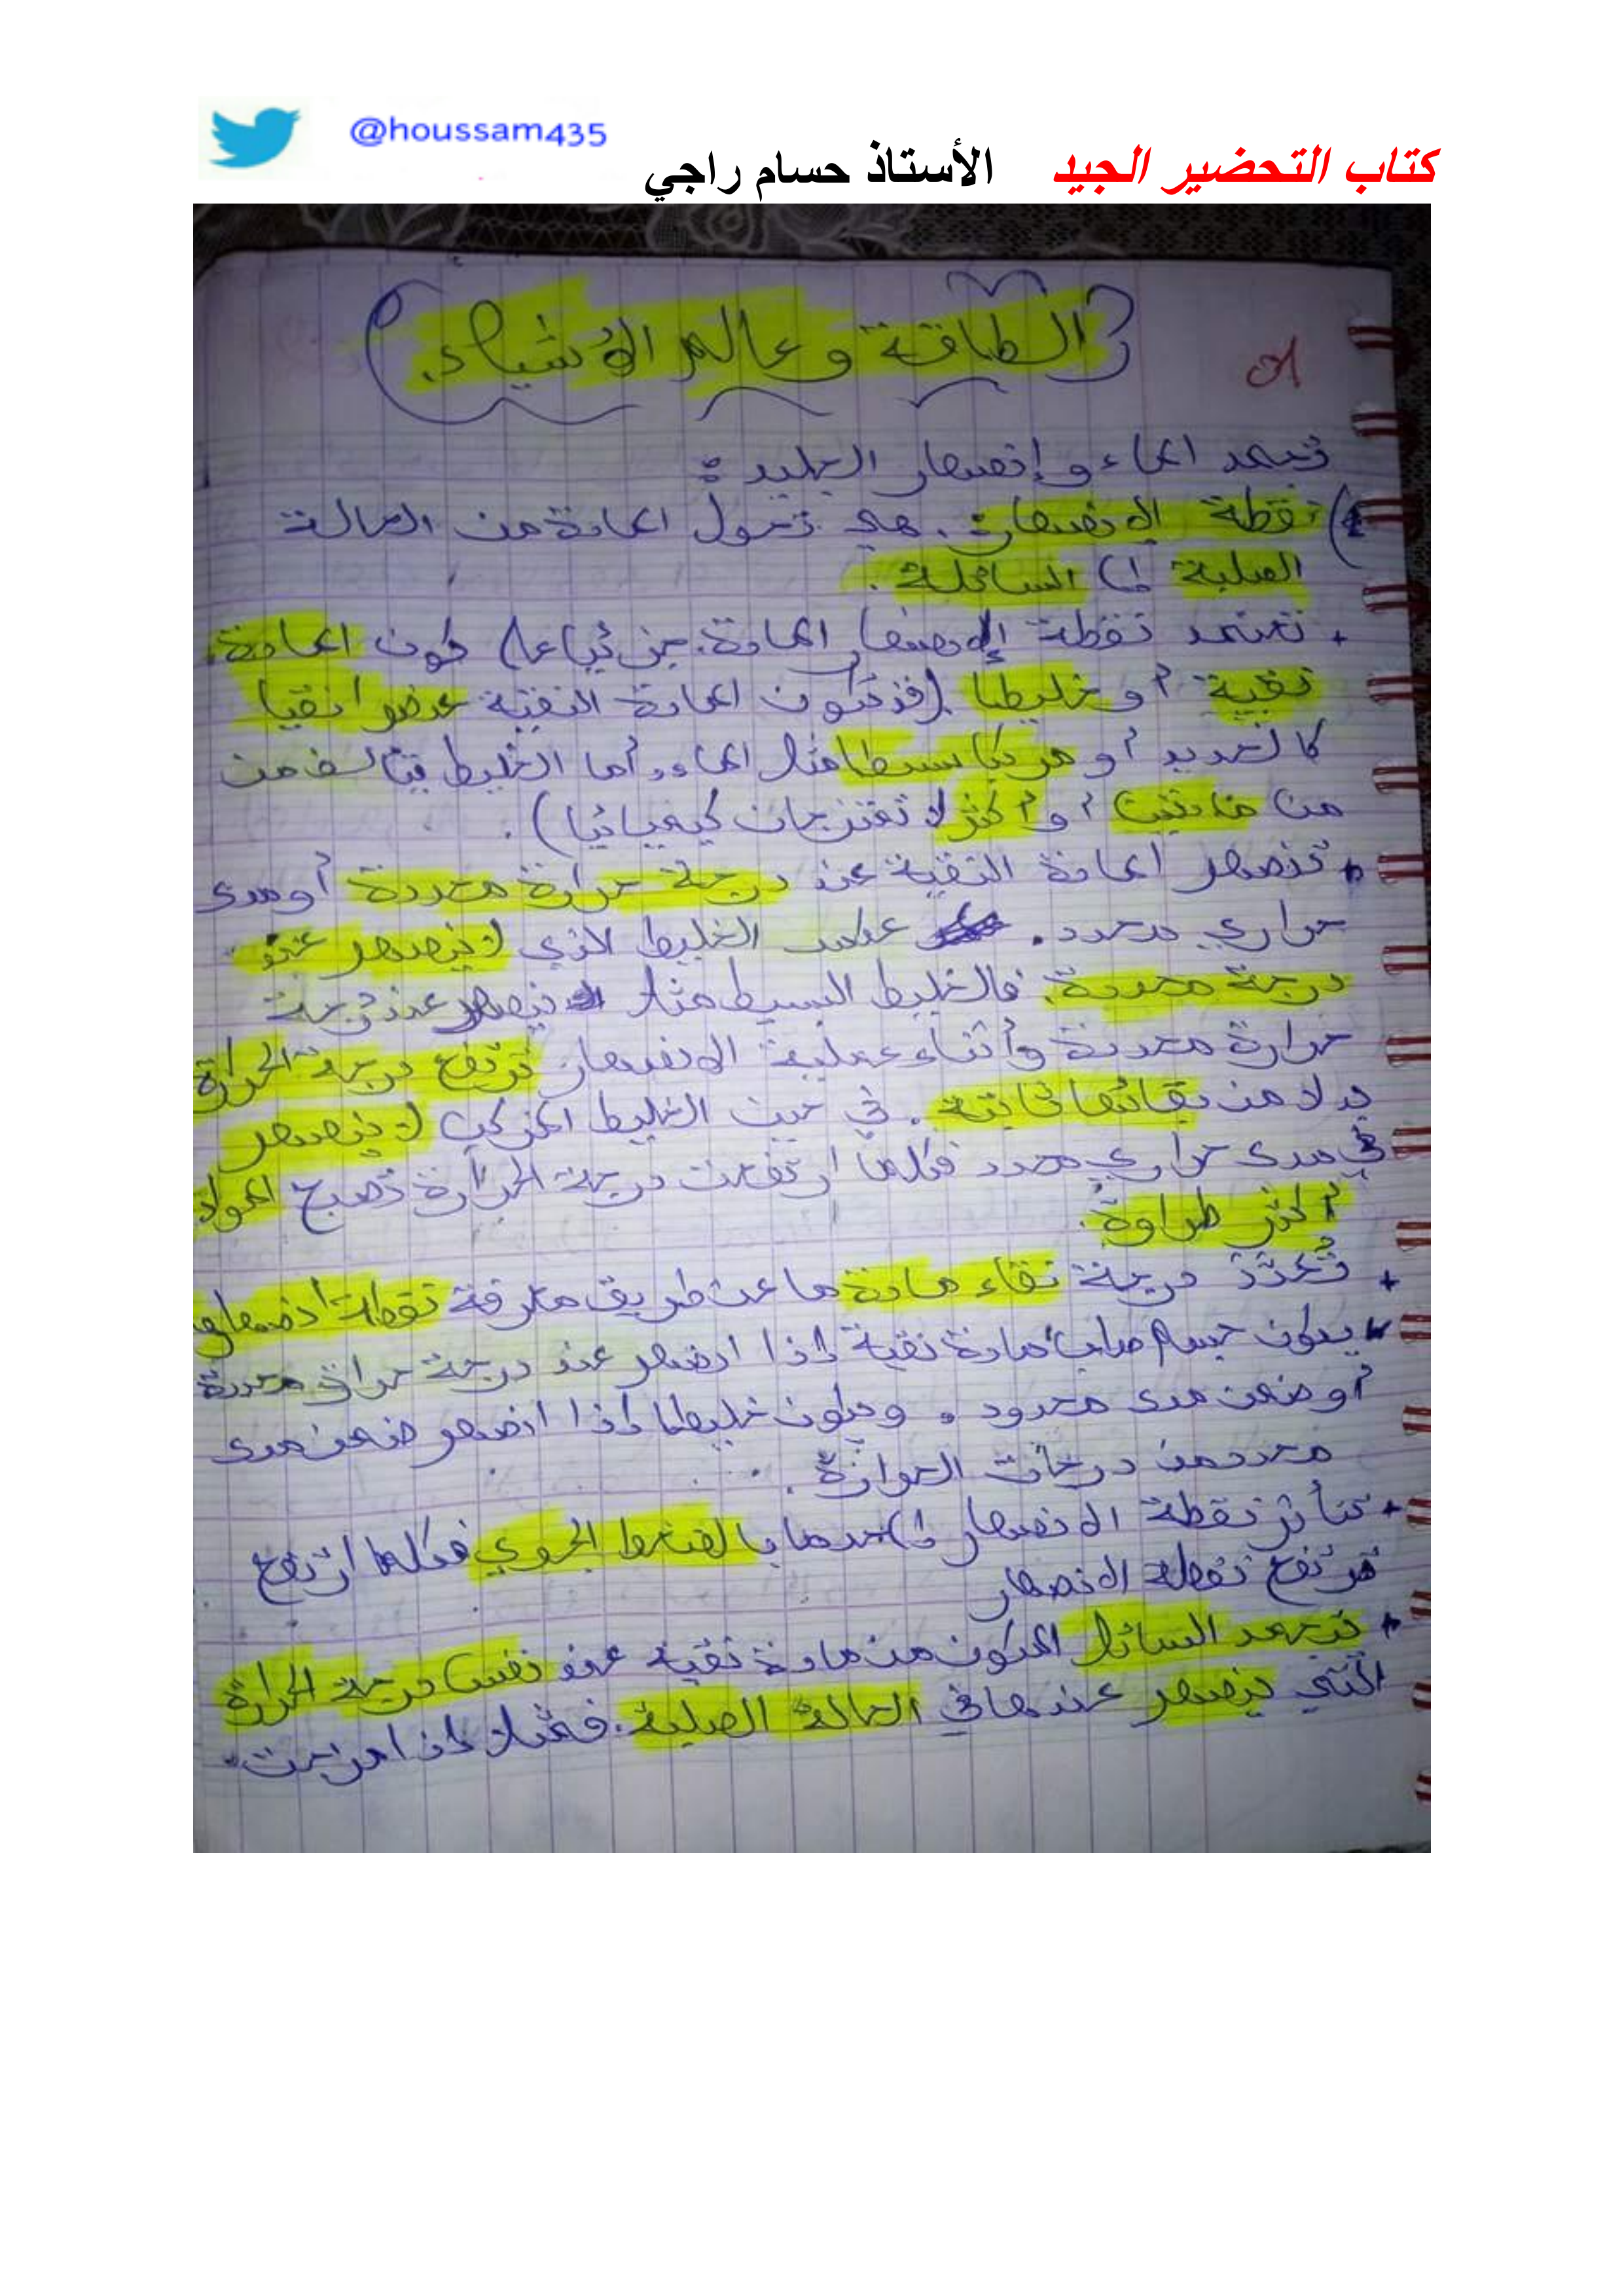 @houssam435
كتاب التحضير الجيد الأستاذ حسام راجي
الطاقة وعالم الأشياء.
01
تجمد الماء وإنصهار الجليد:
1) نقطة الإنصهار: هي تحول المادة من الحالة
الصلبة إلى السائلة.
+ تعتمد نقطة إلانصهار المادة جزئيا على كون المادة
نقية أو خليطا (فتكون المادة النقية عنصرا نقيا
كالحديد أو مركبا بسيطا مثل الماء، أما الخليط فيتألف من
من مادتين أو أكثر لا تمتزجان كيميائيا).
+ تنصهر المادة النقية عند درجة حرارة محددة أو مدى
حراري محدد. عكس الخليط الذي لا ينصهر عند
درجة محددة. فالخليط البسيط مثلا ينصهر عند درجة
حرارة محددة وأثناء عملية الانصهار ترتفع درجة الحرارة
بدلا من بقائها ثابتة. في حين الخليط المركب لا ينصهر
في مدى حراري محدد فكلما ارتفعت درجة الحرارة تصبح المواد
أكثر طراوة.
+ تُحَدَّد درجة نقاء مادة ما عن طريق معرفة نقطة انصهارها
+ يكون جسم صلب مادة نقية إذا انصهر عند درجة حرارة محددة
أو ضمن مدى محدود. ويكون خليطا إذا انصهر ضمن مدى
محدد من درجات الحرارة.
+ تتأثر نقطة الانصهار إلى حد ما بالضغط الجوي فكلما ارتفع
ترتفع نقطة الانصهار
+ يتجمد السائل المكون من مادة نقية عند نفس درجة الحرارة
التي ينصهر عندها في الحالة الصلبة. فمثلا إذا مزجت